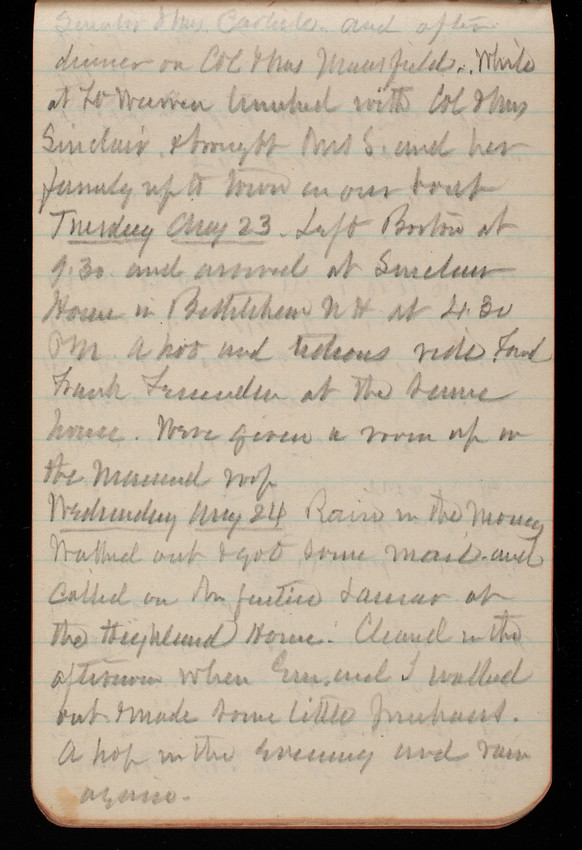 Senator & Mrs. Carlisle. and after
dinner on Col & Mrs Mansfield. While
at Ft Warren lunched with Col & Mrs
Sinclair. & brought Mrs S. and her
family up to town in our boat
Tuesday Aug 23. Left Boston at
9.30 and arrived at Sinclair
House in Bethlehem N H at 4.30
P M. A hot and tedious ride. Found
Frank Fessenden at the same
house. Were given a room up in
the Mansard roof
Wednesday Aug 24 Rain in the morning
Walked out & got some mail and
called on Mr Justice Lamar at
the Highland House. Cleared in the
afternoon when Em. and I walked
out & made some little purchases.
A hop in the evening and rain
again.